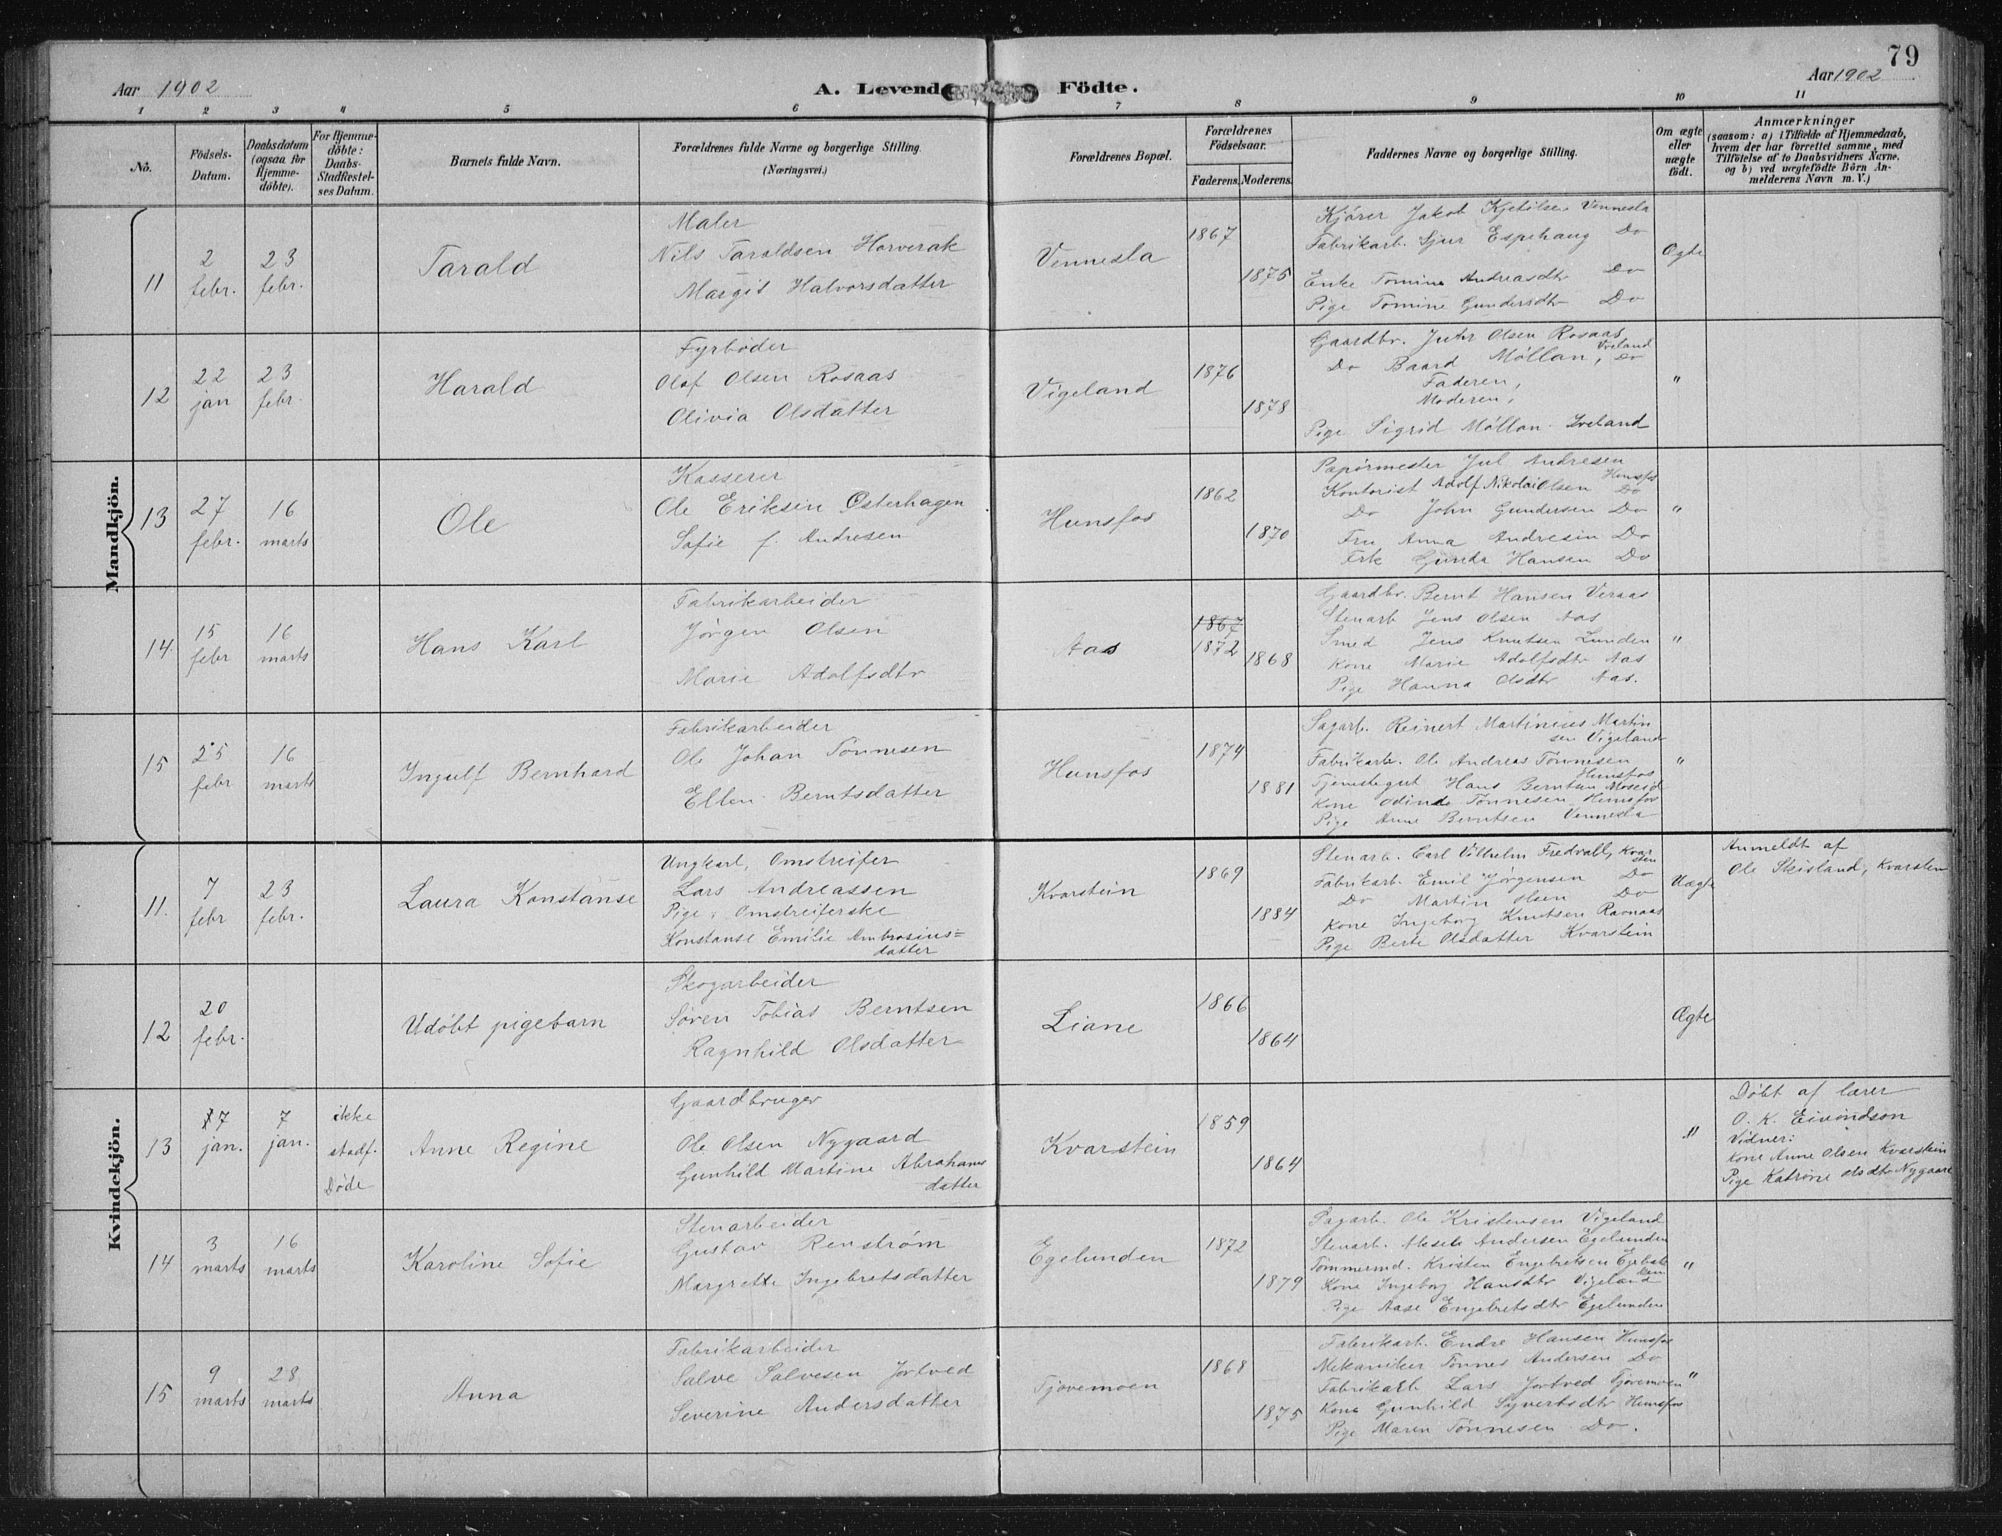 79
Aar 1902
A. Levende Födte.
Aar 1902
1 2 3 4 5 6 7 8 9 10 11
No.
Födsels-Datum.
Daabsdatum (ogsaa for Hjemmedöbte).
For Hjemmedöbte: Daabs-Stadfæstelses Datum.
Barnets fulde Navn.
Forældrenes fulde Navne og borgerlige Stilling.
(Næringsvei.)
Forældrenes Bopæl.
Forældrenes Födselsaar.
Faderens. Moderens.
Faddernes Navne og borgerlige Stilling.
Om ægte eller uægte födt.
Anmærkninger
(saasom: a) i Tilfælde af Hjemmedaab,
hvem der har forrettet samme, med
Tilföielse af to Daabsvidners Navne,
og b) ved uægtefödte Börn An-
melderens Navn m. V.)
Mandkjön.
11
2 febr.
23 febr.
Tarald
Maler
Nils Taraldsen Horverak
Margit Halvorsdatter
Vennesla
1867
1875
Kjører Jakob Kjetilsen Vennesla
Fabrikarb. Sjur Espehaug Do
Enke Tomine Andreasdtr Do
Pige Tomine Gundersdtr Do
Ægte
12
22 jan
23 febr.
Harald
Fyrbøder
Olaf Olsen Rosaas
Olivia Olsdatter
Vigeland
1876
1878
Gaardbr. Olsen Rosaas
Iveland
Do Baard Møllan, Do
Faderen,
Moderen,
Pige Sigrid Møllan Iveland
"
13
27 febr.
16 marts
Ole
Kasserer
Ole Eriksen Østerhagen
Sofie f. Andresen
Hunsfos
1862
1870
Papirmester Jul Andresen
Hunsfos
Kontorist Adolf Nikolai Olsen Do
Do John Gundersen Do
Fru Anna Andresen Do
Frk Gunda Hansen Do
"
14
15 febr
16 marts
Hans Karl
Fabrikarbeider
Jørgen Olsen
Marie Adolfsdtr
Aas
1867
1872
1868
Gaardbr. Bernt Hansen Veraas
Stenarb Jens Olsen Aas
Smed Jens Knutsen Lunden
Kone Marie Adolfsdtr Aas
Pige Hanna Olsdtr Aas.
"
15
25 febr
16 marts
Ingulf Bernhard
Fabrikarbeider
Ole Johan Tønnesen
Ellen Berntsdatter
Hunsfos
1874
1881
Sagarb. Reinert Martinius Martin
sen Vigeland
Fabrikarb. Ole Andreas Tønnesen
Hunsfos
Tjenstegut Hans Berntsen Moseid
Kone Odine Tønnesen Hunsfos
Pige Anne Berntsen Vennesla
"
Kvindekjön.
11.
7 febr
23 febr.
Laura Konstanse
Ungkarl, Omstreifer
Lars Andreassen
Pige, Omstreiferske
Konstanse Emilie Ambrosius=
datter
Kvarstein
1869
1884
Stenarb. Carl Vilhelm Fredvall, Kvar
stein
Fabrikarb. Emil Jørgensen Do
Do Martin Olsen Do
Kone Ingeborg Knutsen Ravnaas
Pige Berte Olsdatter Kvarstein
Uægte
Anmeldt af
Ole Skisland, Kvarstein
12
20 febr.
Udøbt pigebarn
Skogarbeider
Søren Tobias Berntsen
Ragnhild Olsdatter
Liane
1866
1864
Ægte
13
7 jan.
7 jan.
ikke
stadf.
Døde
Anne Regine
Gaardbruger
Ole Olsen Nygaard
Gunhild Martine Abrahams
datter
Kvarstein
1859
1864
"
Døbt af lærer
O. K. Eivindson
Vidner:
Kone Anne Olsen Kvarstein
Pige Katrine Olsdtr Nygaard
14
3 marts
16 marts
Karoline Sofie
Stenarbeider
Gustav Renstrøm
Margrette Ingebretsdatter
Egelunden
1872
1879
Sagarb. Ole Kristensen Vigeland
Stenarb. Andersen Egelunden
Tømmermd. Kristen Engebretsen
Kone Ingeborg Hansdtr Vigeland
Pige Aase Engebretsdtr Egelunden
"
15
9 marts
28 marts
Anna
Fabrikarbeider
Salve Salvesen Jortved
Severine Andersdatter
Tjovemoen
1868
1875
Fabrikarb. Endre Hansen Hunsfos
Mekaniker Tønnes Andersen Do
Fabrikarb Lars Jortved Tjovemoen
Kone Gunhild Syvertsdtr Hunsfos
Pige Maren Tønnesen Do.
"